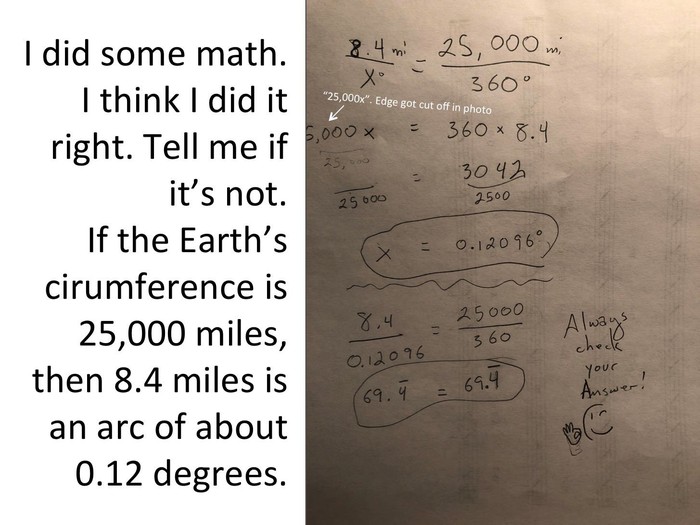 I did some math.
I think I did it
right. Tell me if
it’s not.
If the Earth’s
cirumference is
25,000 miles,
then 8.4 miles is
an arc of about
0.12 degrees.
8.4 mi / x° = 25,000 mi / 360°
“25,000x”. Edge got cut off in photo
5,000 x = 360 × 8.4
25,000
25000 = 3042 / 2500
x = 0.12096°
8.4 / 0.12096 = 25000 / 360
69.4̅ = 69.4̅
Always
check
your
Answer!